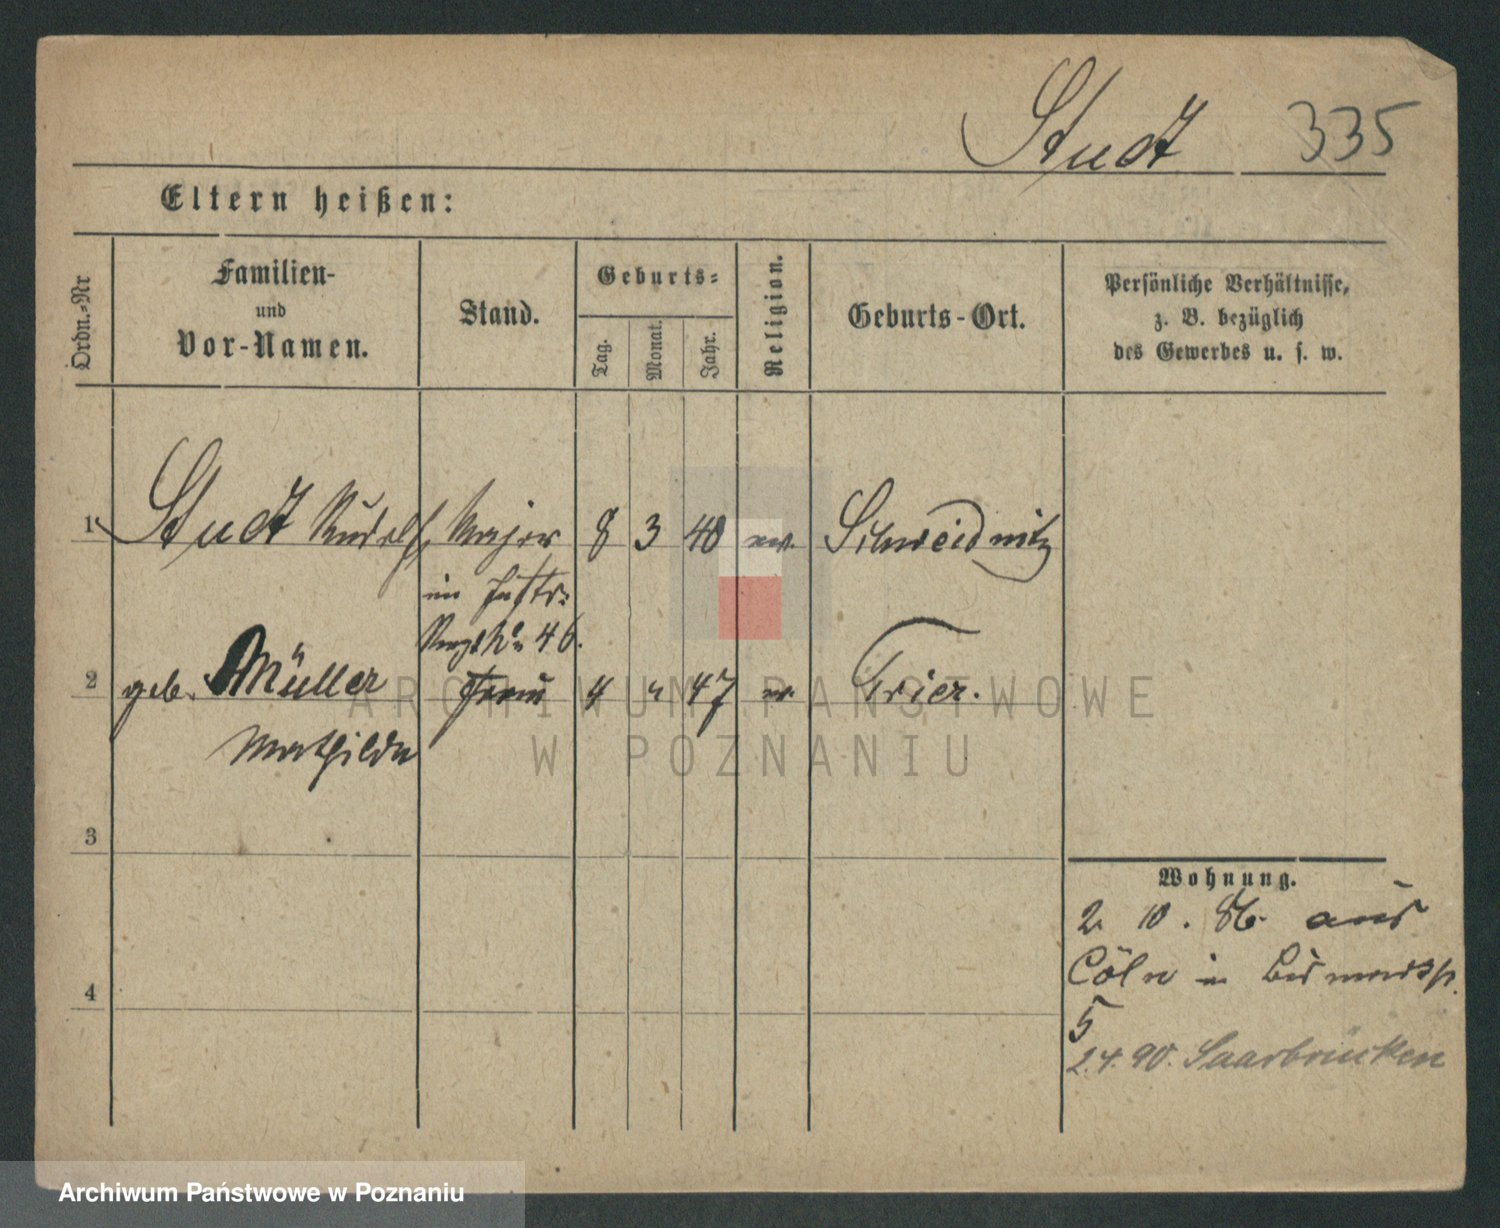 Studt 335
Eltern heißen:
Ordn.-Nr
Familien-
und
Vor-Namen.
Stand.
Geburts-
Tag.
Monat.
Jahr.
Religion.
Geburts-Ort.
Persönliche Verhältnisse,
z. B. bezüglich
des Gewerbes u. s. w.
1 Studt Rudolf, Major 8 3 40 ev. Schweidnitz
im Inftr:
Regt No 46.
2 geb. Müller Frau 4 " 47 ev. Trier.
Mathilde
3
4
Wohnung.
2. 10. 86. aus
Cöln in Bismarckstr.
5
2.4.90. Saarbrücken
ARCHIWUM PAŃSTWOWE
W POZNANIU
Archiwum Państwowe w Poznaniu